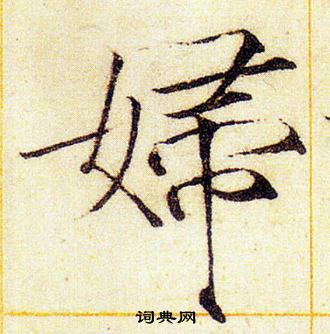 婦
词典网